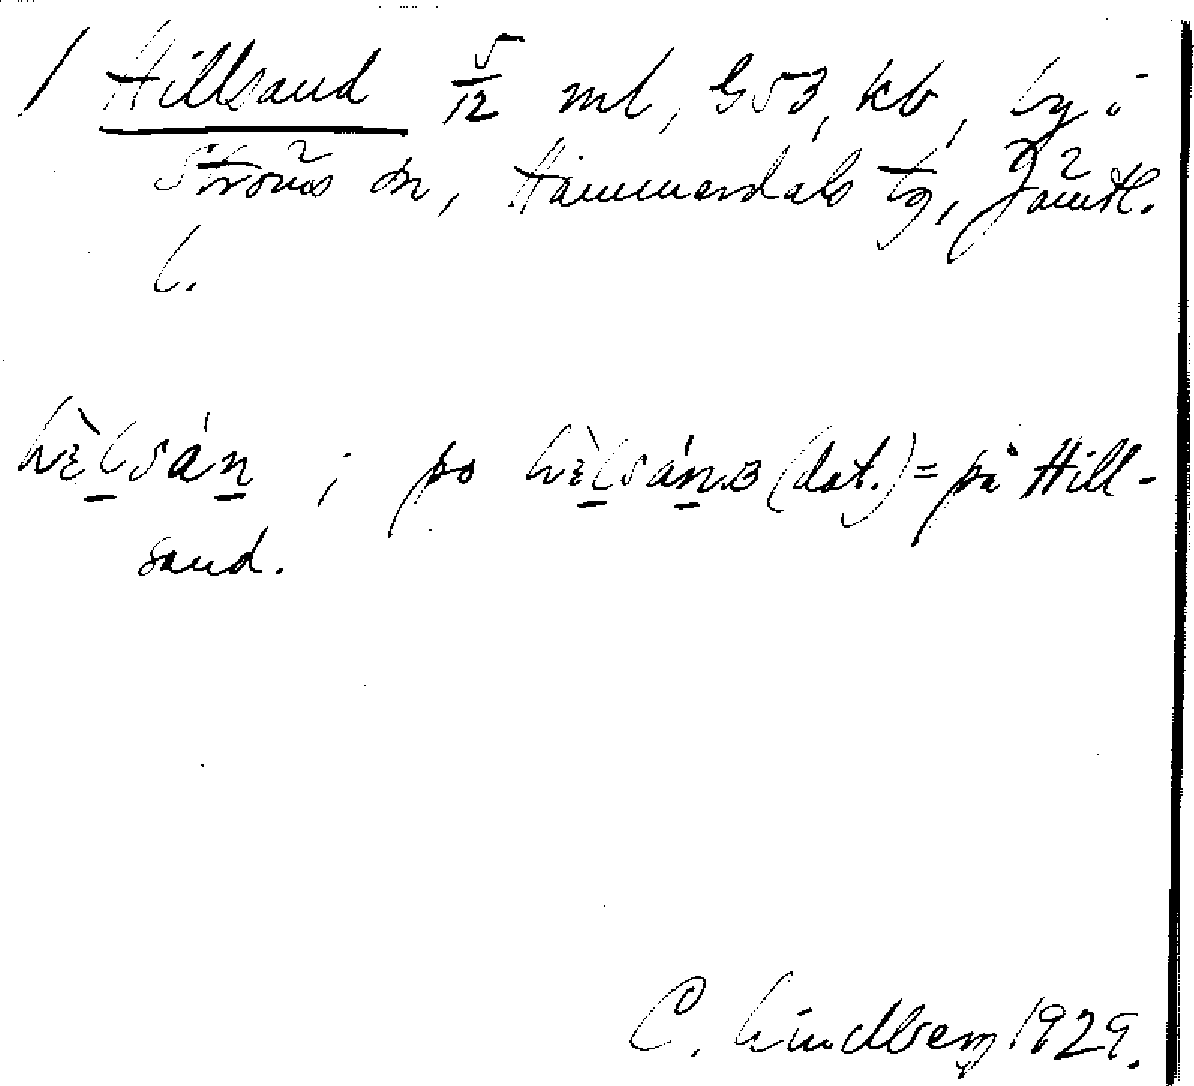 / Hillsand 5/12 ml, G53, kb, by i
Ströms sn, Hammerdals tg, Jämtl.
l.
hὲlsán ; po hὲlsánɜ (dat.) = på Hill-
sand.
C. Lindberg 1929.